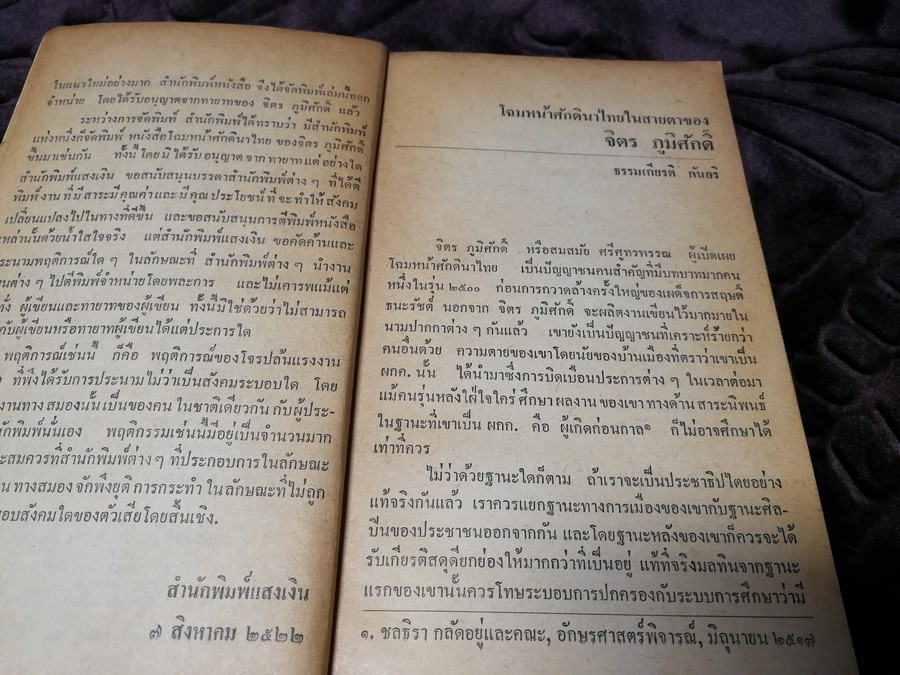 ในแนวใหม่อย่างมาก สำนักพิมพ์หนังสือ จึงได้จัดพิมพ์เล่มนี้ออก
จำหน่าย โดยได้รับอนุญาตจากทายาทของ จิตร ภูมิศักดิ์ แล้ว
ระหว่างการจัดพิมพ์ สำนักพิมพ์ได้ทราบว่า มีสำนักพิมพ์
แห่งหนึ่งก็จัดพิมพ์ หนังสือโฉมหน้าศักดินาไทย ของจิตร ภูมิศักดิ์
ขึ้นมาเช่นกัน ทั้งนี้โดยมิได้รับอนุญาตจากทายาทแต่อย่างใด
สำนักพิมพ์แสงเงิน ขอสนับสนุนบรรดาสำนักพิมพ์ต่าง ๆ ที่ได้ตี
พิมพ์งานที่มีสาระมีคุณค่าและมีคุณประโยชน์ที่จะทำให้สังคม
เปลี่ยนแปลงไปในทางที่ดีขึ้น และขอสนับสนุนการตีพิมพ์หนังสือ
เหล่านั้นด้วยน้ำใสใจจริง แต่สำนักพิมพ์แสงเงิน ขอคัดค้านและ
ประนามพฤติการณ์ใด ๆ ในลักษณะที่ สำนักพิมพ์ต่าง ๆ นำงาน
ต่าง ๆ ไปตีพิมพ์จำหน่ายโดยพละการ และไม่เคารพแม้แต่
ทั่ง ผู้เขียนและทายาทของผู้เขียน ทั้งนี้มิใช่ด้วยว่าไม่สามารถ
กับผู้เขียนหรือทายาทผู้เขียนได้แต่ประการใด
พฤติการณ์เช่นนี้ ก็คือ พฤติการณ์ของโจรปล้นแรงงาน
ที่พึงได้รับการประนามไม่ว่าเป็นสังคมระบอบใด โดย
งานทางสมองนั้นเป็นของคนในชาติเดียวกันกับผู้ประ-
นักพิมพ์นั่นเอง พฤติกรรมเช่นนี้มีอยู่เป็นจำนวนมาก
ะสมควรที่สำนักพิมพ์ต่าง ๆ ที่ประกอบการในลักษณะ
ทางสมอง จักพึงยุติการกระทำในลักษณะที่ไม่ถูก
อบสังคมใดของตัวเสียโดยสิ้นเชิง.
สำนักพิมพ์แสงเงิน
๗ สิงหาคม ๒๕๒๒
โฉมหน้าศักดินาไทยในสายตาของ
จิตร ภูมิศักดิ์
ธรรมเกียรติ กันอริ
จิตร ภูมิศักดิ์ หรือสมสมัย ศรีศูทรพรรณ ผู้เปิดเผย
โฉมหน้าศักดินาไทย เป็นปัญญาชนคนสำคัญที่มีบทบาทมากคน
หนึ่งในรุ่น ๒๕๐๐ ก่อนการกวาดล้างครั้งใหญ่ของเผด็จการสฤษดิ์
ธนะรัชต์ นอกจาก จิตร ภูมิศักดิ์ จะผลิตงานเขียนไว้มากมายใน
นามปากกาต่าง ๆ กันแล้ว เขายังเป็นปัญญาชนที่เคราะห์ร้ายกว่า
คนอื่นด้วย ความตายของเขาโดยนัยของบ้านเมืองที่ตราว่าเขาเป็น
ผกค. นั้น ได้นำมาซึ่งการบิดเบือนประการต่าง ๆ ในเวลาต่อมา
แม้คนรุ่นหลังใฝ่ใจใคร่ศึกษา ผลงาน ของเขาทางด้าน สาระนิพนธ์
ในฐานะที่เขาเป็น ผกก. คือ ผู้เกิดก่อนกาล๑ ก็ไม่อาจศึกษาได้
เท่าที่ควร
ไม่ว่าด้วยฐานะใดก็ตาม ถ้าเราจะเป็นประชาธิปไตยอย่าง
แท้จริงกันแล้ว เราควรแยกฐานะทางการเมืองของเขากับฐานะศิล-
ปินของประชาชนออกจากกัน และโดยฐานะหลังของเขาก็ควรจะได้
รับเกียรติสดุดียกย่องให้มากกว่าที่เป็นอยู่ แท้ที่จริงมลทินจากฐานะ
แรกของเขานั้นควรโทษระบอบการปกครองกับระบบการศึกษาว่ามี
๑. ชลธิรา กลัดอยู่และคณะ, อักษรศาสตร์พิจารณ์, มิถุนายน ๒๕๑๗